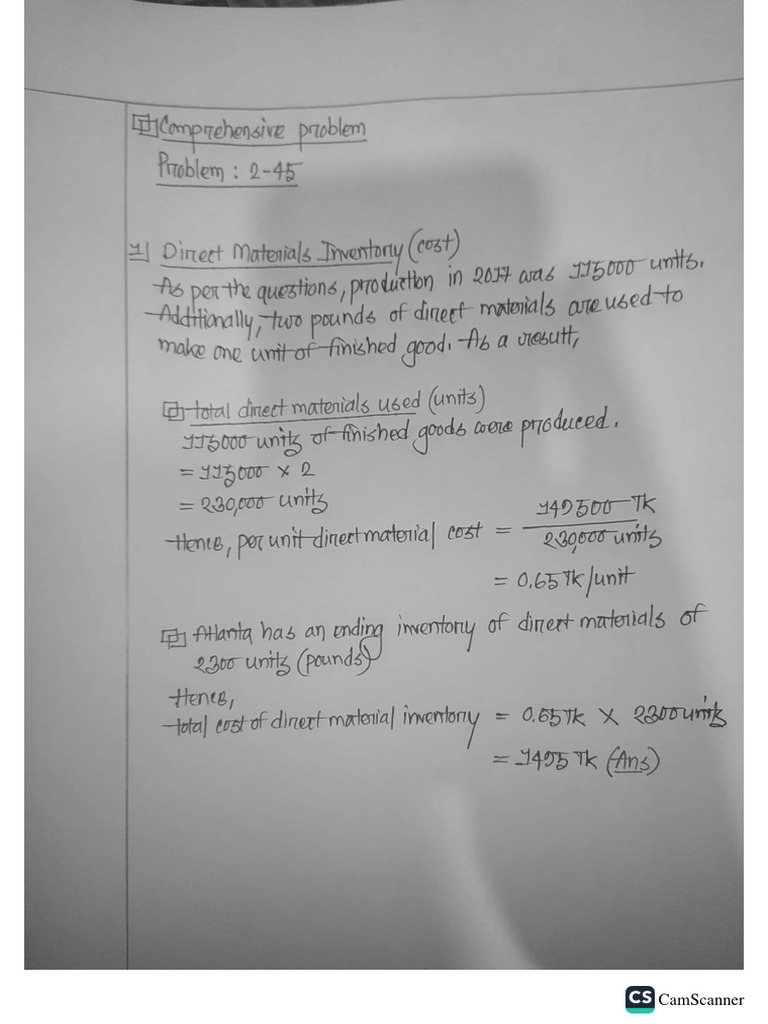 Comprehensive problem
Problem : 2-45
1| Direct Materials Inventory (cost)
As per the questions, production in 2017 was 115000 units.
Additionally, two pounds of direct materials are used to
make one unit of finished good. As a result,
total direct materials used (units)
115000 units of finished goods were produced.
= 115000 × 2
= 230,000 units
Hence, per unit direct material cost = 149500 Tk
230,000 units
= 0.65 Tk/unit
Atlanta has an ending inventory of direct materials of
2300 units (pounds)
Hence,
total cost of direct material inventory = 0.65 Tk × 2300 units
= 1495 Tk (Ans)
CS CamScanner